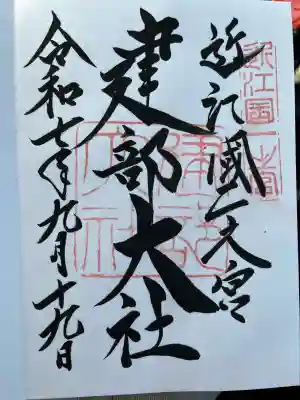 近江國一之宮
建部大社
令和七年九月十九日
近江国
一之宮
建部大社